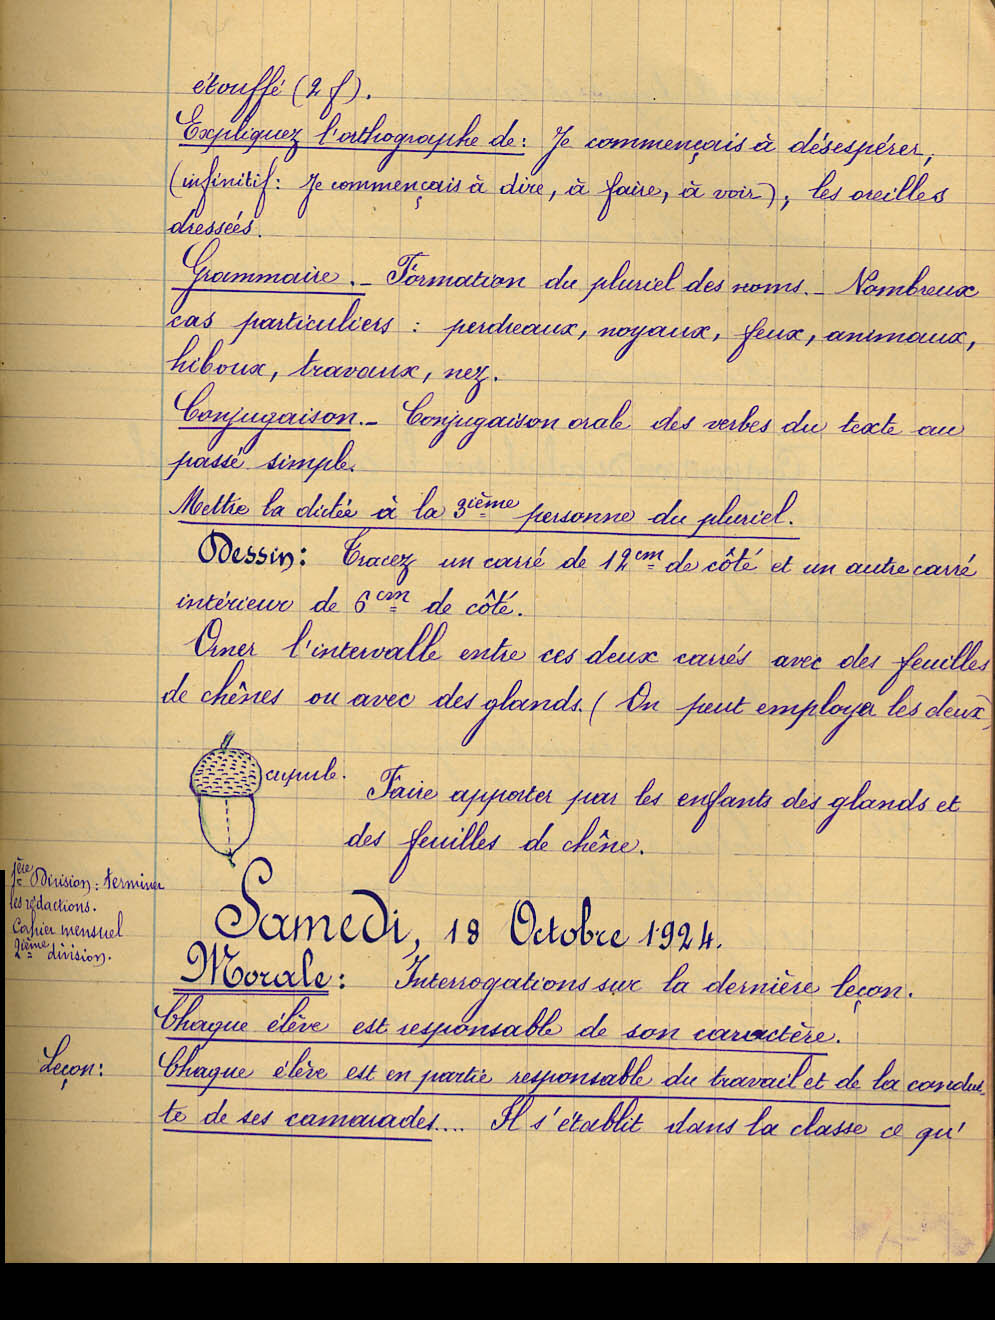 étouffé (2 f).
Expliquez l'orthographe de : Je commençais à désespérer,
(infinitif : Je commençais à dire, à faire, à voir), les oreilles
dressées.
Grammaire. – Formation du pluriel des noms. – Nombreux
cas particuliers : perdreaux, noyaux, feux, animaux,
hiboux, travaux, nez.
Conjugaison. – Conjugaison orale des verbes du texte au
passé simple.
Mettre la dictée à la 3ième personne du pluriel.
Dessin : Tracez un carré de 12 cm de côté et un autre carré
intérieur de 6 cm de côté.
Orner l'intervalle entre ces deux carrés avec des feuilles
de chênes ou avec des glands. (On peut employer les deux)
cupule.
Faire apporter par les enfants des glands et
des feuilles de chêne.
1ère Division : terminer
les rédactions.
Cahier mensuel
2ième division.
Samedi, 18 Octobre 1924.
Morale : Interrogations sur la dernière leçon.
Chaque élève est responsable de son caractère.
Leçon : Chaque élève est en partie responsable du travail et de la condui-
te de ses camarades.... Il s'établit dans la classe ce qu'